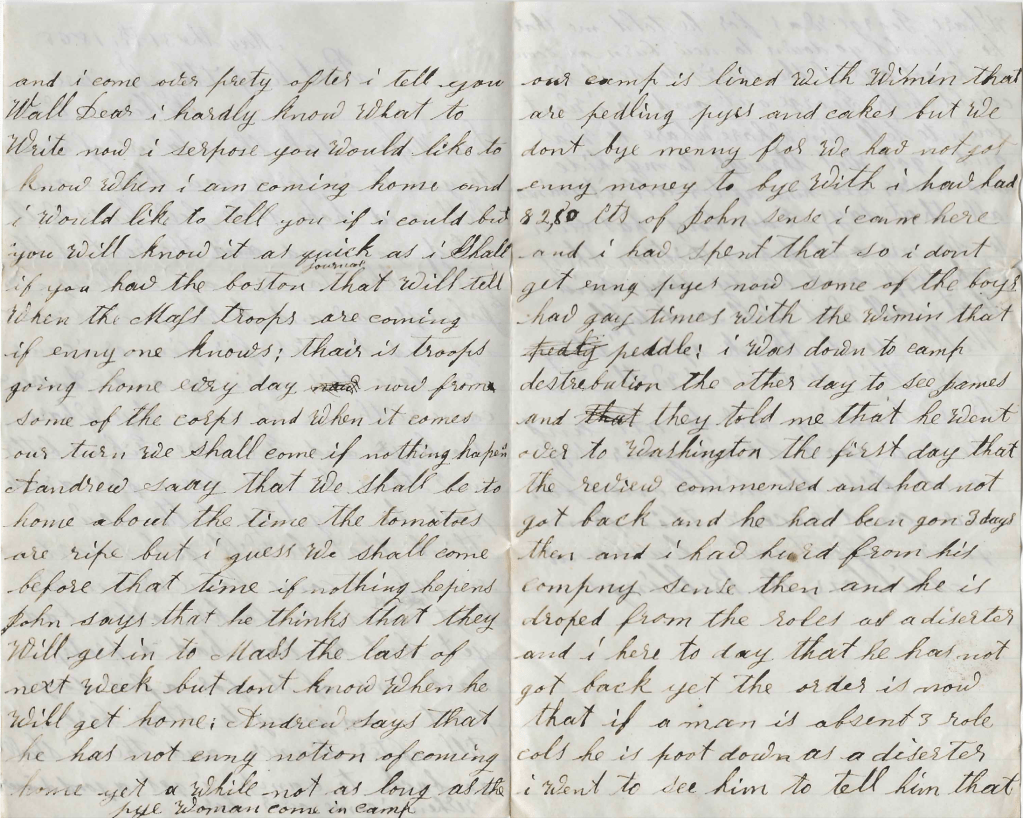 and i come over prety ofter i tell you
Wall Dear i hardly know What to
Write now i serpose you Would like to
know When i am coming home and
i Would like to tell you if i could but
you Will know it as quick as i Shall
journal
if you had the boston that Will tell
When the Mass troops are coming
if enny one knows; thair is troops
going home evry day now from
some of the corps and When it comes
our turn We shall come if nothing hapen
Aandrew saay that We shall be to
home about the time the tomatoes
are ripe but i guess We shall come
before that time if nothing hepens
John says that he thinks that they
Will get in to Mass the last of
next Week but dont know When he
Will get home; Andrew says that
he has not enny notion of coming
home yet a While not as long as the
pye Woman come in camp
our camp is lined With Wimin that
are pedling pyes and cakes but We
dont bye menny for We had not got
enny money to bye With i had had
$2,80 cts of John sense i came here
and i had spent that so i dont
get enny pyes now some of the boys
had gay times With the Wimin that
peddle; i Was down to camp
destrebution the other day to see James
and that they told me that he Went
over to Washington the first day that
the review commensed and had not
got back and he had ben gon 3 days
then and i had herd from his
compny sense then and he is
droped from the roles as a diserter
and i here to day that he has not
got back yet the order is now
that if a man is absent 3 role
cols he is poot down as a diserter
i Went to see him to tell him that